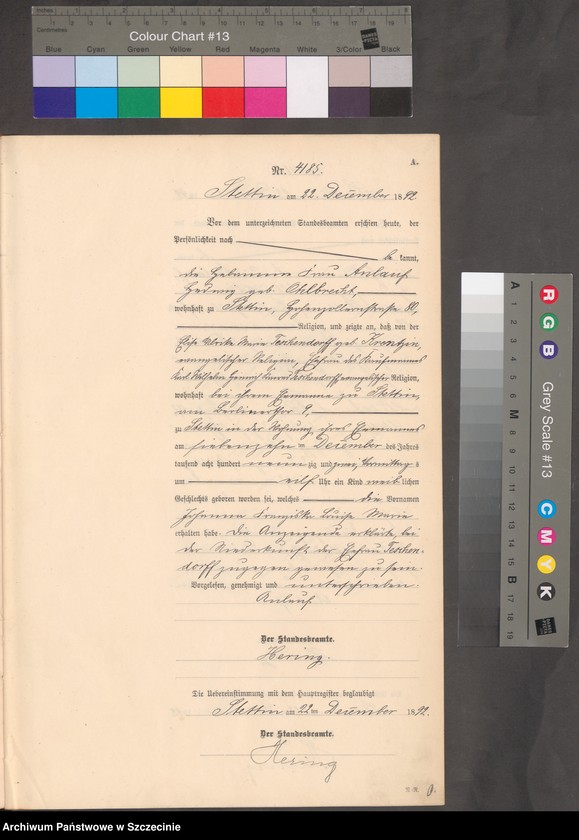 Inches 1 2 3 4 5 6 7 8
Centimetres 1 2 3 4 5 6 7 8 9 10 11 12 13 14 15 16 17 18 19
Colour Chart #13
Blue Cyan Green Yellow Red Magenta White 3/Color Black
A.
Nr. 4185.
Stettin am 22. Dezember 1892
Vor dem unterzeichneten Standesbeamten erschien heute, der
Persönlichkeit nach
be kannt,
die Hebamme Frau Anlauf
Hedwig geb. Ohlbrecht,
wohnhaft zu Stettin, Hohenzollernstraße 80,
Religion, und zeigte an, daß von der
Elise Ulrike Marie Teschendorff geb. Krentzin,
evangelischer Religion, Ehefrau des Kaufmanns
Karl Wilhelm Heinrich Teschendorff evangelischer Religion,
wohnhaft bei ihrem Ehemanne zu Stettin,
am Berlinerthor 9,
zu Stettin in der Wohnung ihres Ehemannes
am siebenzehn= Dezember des Jahres
tausend acht hundert neun zig und zwei, Vormittags
um eilf Uhr ein Kind weib lichen
Geschlechts geboren worden sei, welches die Vornamen
Johanna Franziska Luise Marie
erhalten habe. Die Anzeigende erklärte, bei
der Niederkunft der Ehefrau Teschen-
dorff zugegen gewesen zu sein.
Vorgelesen, genehmigt und unterschrieben
Anlauf.
Der Standesbeamte.
Hering.
Die Uebereinstimmung mit dem Hauptregister beglaubigt
Stettin am 22ten Dezember 1892.
Der Standesbeamte.
Hering
Grey Scale #13
A 1 2 3 4 5 6 M 8 9 10 11 12 13 14 15 B 17 18 19
R G B
C M Y K
Archiwum Państwowe w Szczecinie